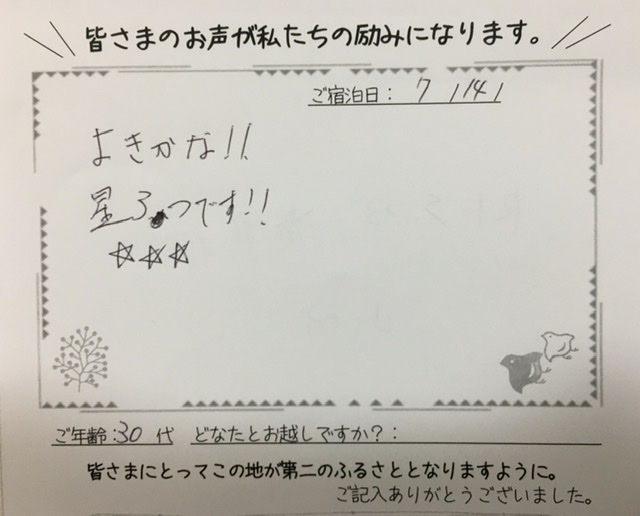 皆さまのお声が私たちの励みになります。
ご宿泊日： 7 / 14 /
よきかな!!
星3つです!!
☆☆☆
ご年齢：30 代 どなたとお越しですか？：
皆さまにとってこの地が第二のふるさととなりますように。
ご記入ありがとうございました。